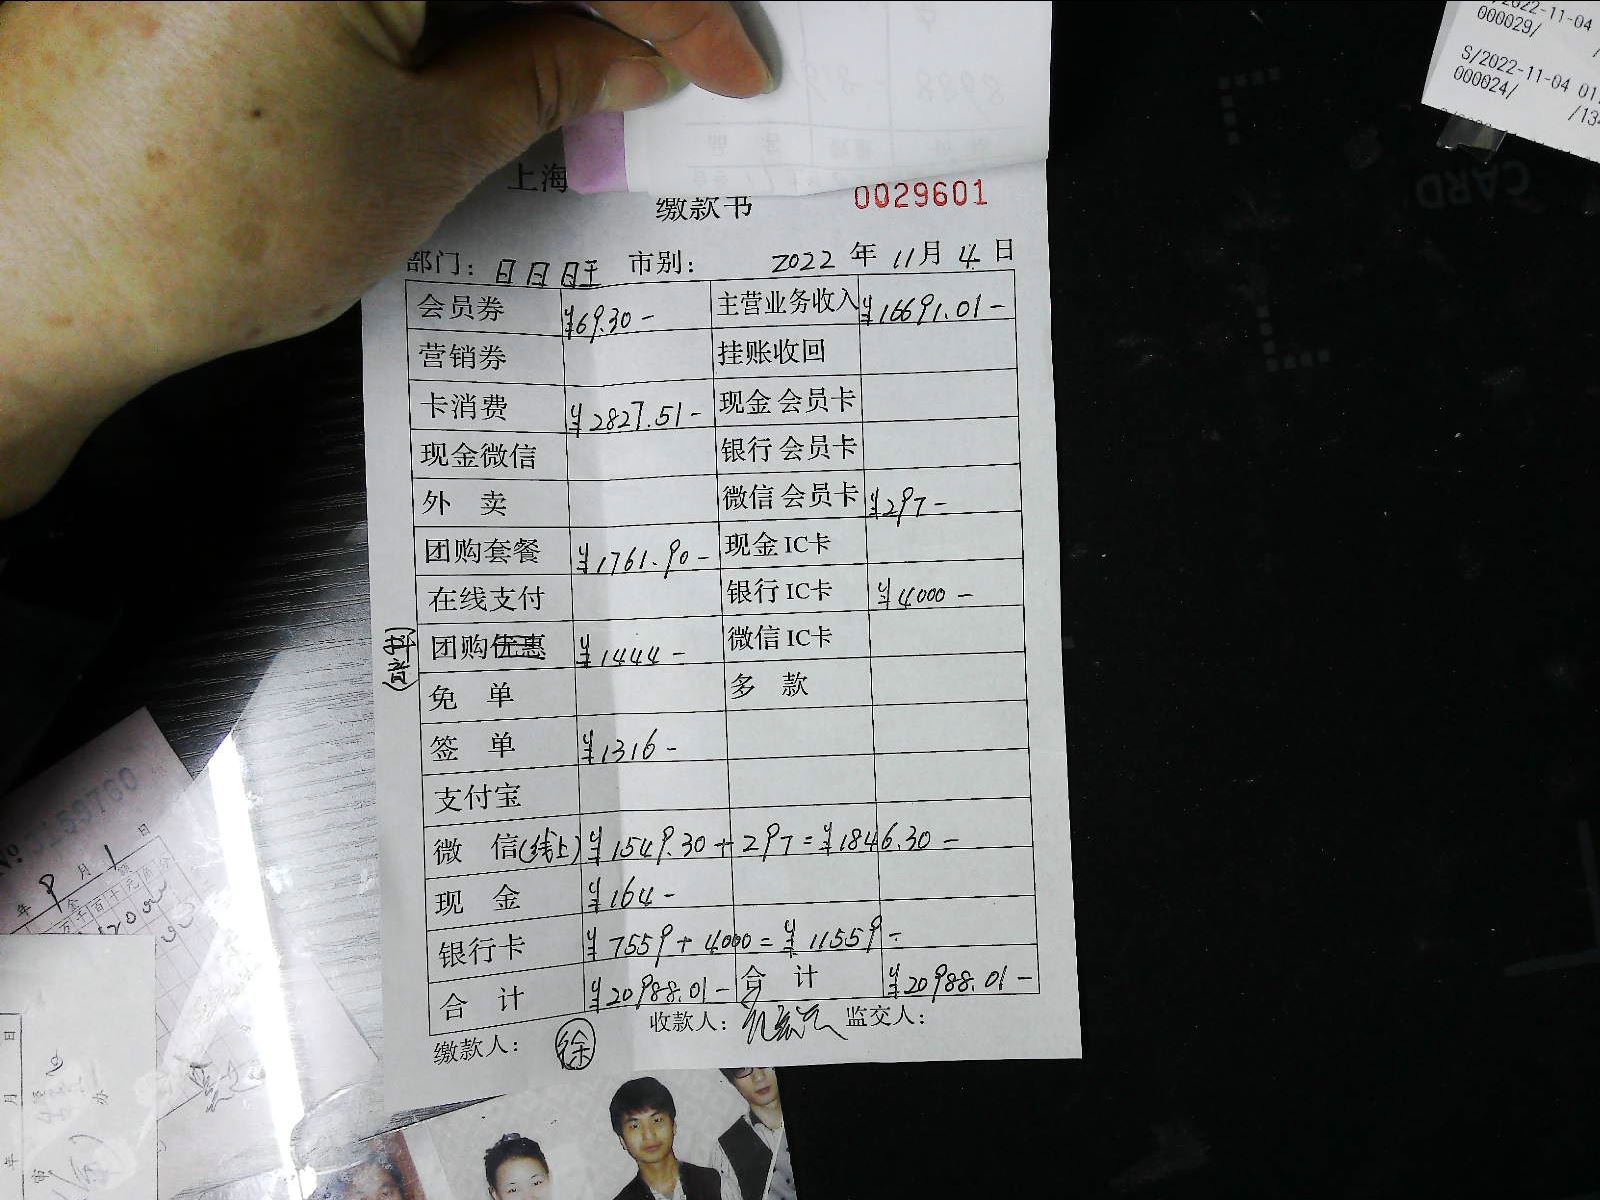 S/2022-11-04
000029/
S/2022-11-04 01
000024/
/134
CARD
上海
缴款书
0029601
部门： 日日旺 市别： 2022 年 11 月 4 日
会员券 ¥69.30- 主营业务收入 ¥16691.01-
营销券 挂账收回
卡消费 ¥2827.51- 现金会员卡
现金微信 银行会员卡
外 卖 微信会员卡 ¥297-
团购套餐 ¥1761.90- 现金IC卡
在线支付 银行IC卡 ¥4000-
团购优惠 ¥1444- 微信IC卡
免 单 多 款
签 单 ¥1316-
支付宝
微 信(线上) ¥1549.30+297=¥1846.30-
现 金 ¥164-
银行卡 ¥7559+4000=¥11559-
合 计 ¥20988.01- 合 计 ¥20988.01-
缴款人： 徐 收款人： 监交人：
年 9 月 1 日